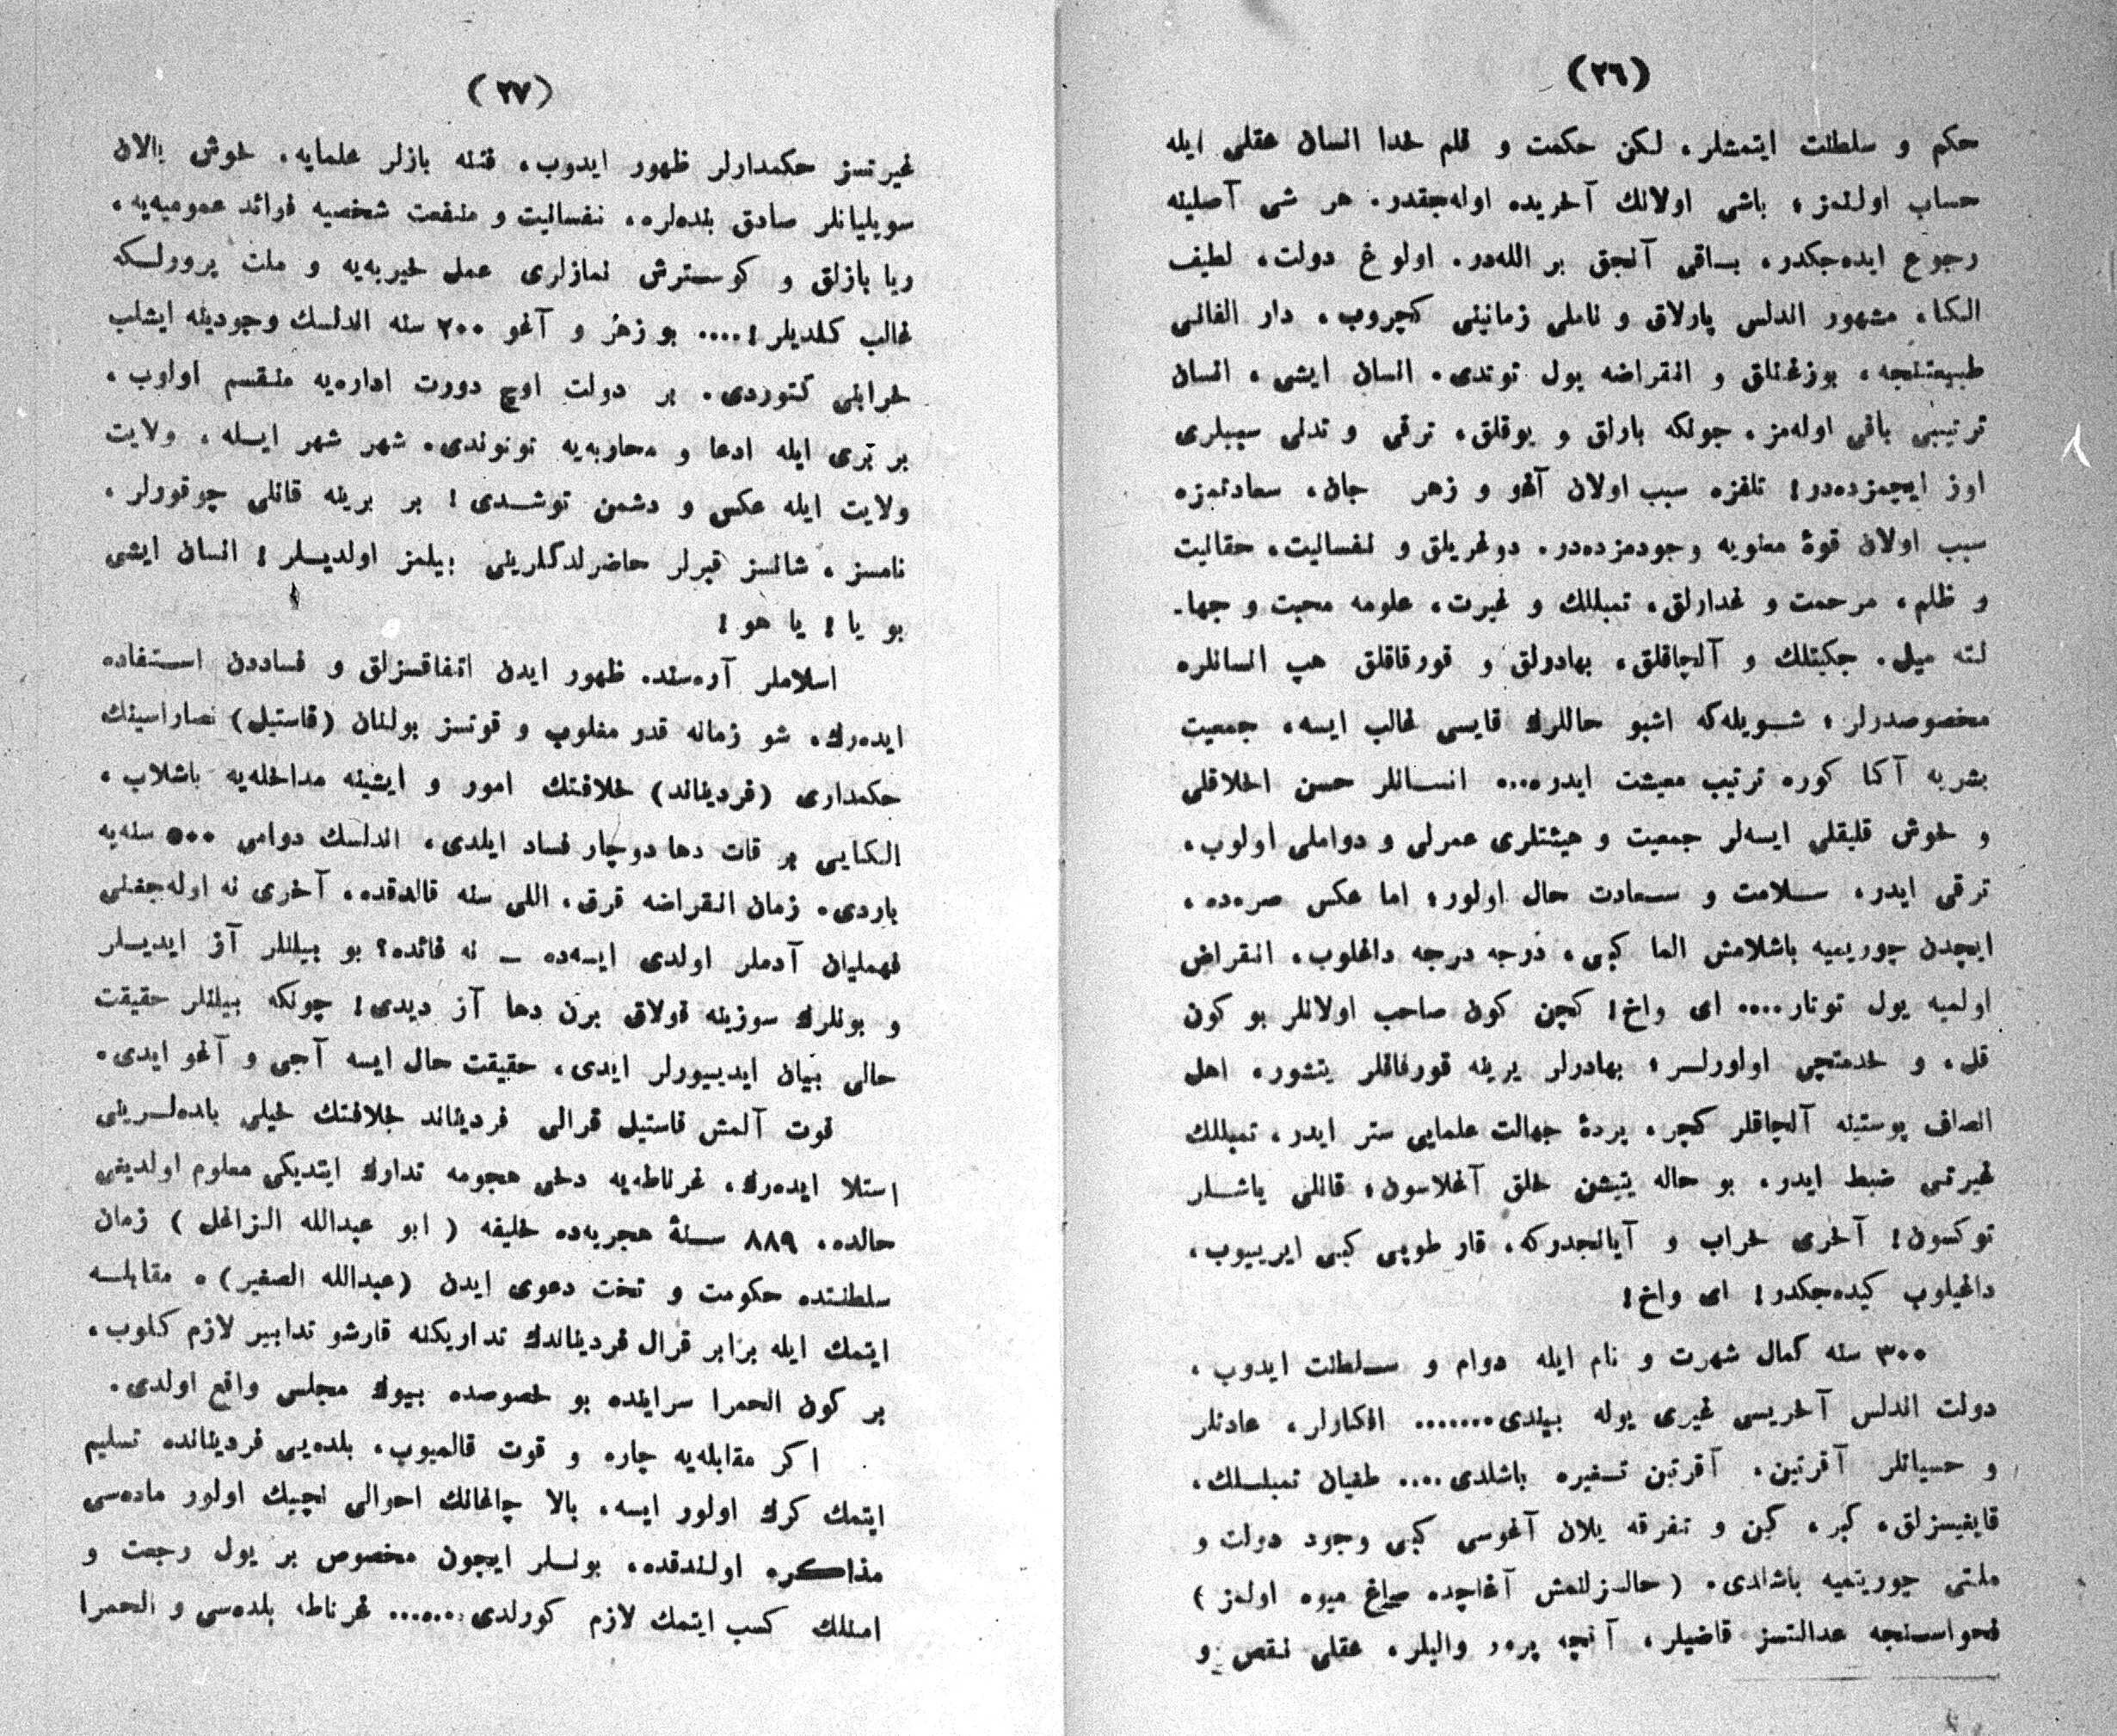 (٢٦)
حكم و سلطنت ايتمشلر، لكن حكمت و قلم خدا انسان عقلى ايله
حساب اولنمز؛ باشى اولانك آخريده اوله‌جقدر. هر شى آصلينه
رجوع ايده‌جكدر، بساقى آنجق بر الله‌در. اولوغ دولت، لطيف
الكا، مشهور اندلس پارلاق و ناملى زمانينى كچروب، دار الفانى
طبيعتنجه، بوزغنلق و انقراضه يول توتدى. انسان ايشى، انسان
ترتيبى باقى اوله‌مز، جونكه بارلق و يوقلق، ترقى و تدنى سببلرى
اوز ايچمزده‌در! تلفزه سبب اولان آغو و زهر جان، سعادتمزه
سبب اولان قوۀ معنويه وجودمزده‌در. دوغريلق و نفسانيت، حقانيت
و ظلم، مرحمت و غدارلق، تمبللك و غيرت، علومه محبت و جها-
لته ميل، جكيتلك و آلچاقلق، بهادرلق و قورقاقلق هپ انسانلره
مخصوصدرلر؛ شويله‌كه اشبو حاللرك قايسى غالب ايسه، جمعيت
بشريه آكا كوره ترتيب معيشت ايدره... انسانلر حسن اخلاقلى
و خوش قليقلى ايسه‌لر جمعيت و هيئتلرى عمرلى و دواملى اولوب،
ترقى ايدر، سلامت و سعادت حال اولور؛ اما عكس صره‌ده،
ايچدن چوريميه باشلامش الما كبى، درجه درجه داغلوب، انقراض
اولميه يول توتار.... اى واخ! كچن كون صاحب اولانلر بو كون
قل، و خدمتچى اولورلر؛ بهادرلر يرينه قورقاقلر يتشور، اهل
انصاف پوستينه آلچاقلر كچر، پردۀ جهالت علمايى ستر ايدر، تمبللك
غيرتى ضبط ايدر، بو حاله يتيشن خلق آغلاسون؛ قانلى ياشلر
توكسون! آخرى خراب و آيانچدركه، قار طوپى كبى ايريبوب،
داغيلوب كيده‌جكدر! اى واخ!
٣٠٠ سنه كمال شهرت و نام ايله دوام و سلطنت ايدوب،
دولت اندلس آخريسى غيرى يوله بيندى....... افكارلر، عادتلر
و حسياتلر آقرتين، آقرتين تسفيره باشلدى.... طغيان تمبللك،
قايغيسزلق، كبر، كين و تفرقه يلان آغوسى كبى وجود دولت و
ملتى چوريتميه باشلدى. (حالسزلنمش آغاچده صاغ ميوه اولمز)
فحواسنجه عدالتسز قاضيلر، آنچه پرور واليلر، عقلى نقص و
(٢٧)
غيرتسز حكمدارلر ظهور ايدوب، فتنه بازلر علمايه، خوش يالان
سويليانلر صادق بنده‌لره، نفسانيت و منفعت شخصيه فوائد عموميه‌يه،
ريا بازلق و كوسترش نمازلرى عمل خيريه‌يه و ملت پرورلكه
غالب كلديلر!.... بو زهر و آغو ٢٠٠ سنه اندلسك وجودينه ايشلب
خرابلى كتوردى. بر دولت اوچ دورت اداره‌يه منقسم اولوب،
بر برى ايله ادعا و محاربه‌يه توتوندى. شهر شهر ايله، ولايت
ولايت ايله عكس و دشمن توشدى! بر برينه قانلى چوقورلر،
نامسز، شانسز قبرلر حاضرلدكلرينى بيلمز اولديلر! انسان ايشى
بو يا! يا هو!
اسلاملر آره‌سنده ظهور ايدن اتفاقسزلق و فساددن استفاده
ايده‌رك، شو زمانه قدر مغلوب و قوتسز بولنان (قاستيل) نصاراسينك
حكمدارى (فردينالد) خلافتك امور و ايشينه مداخله‌يه باشلاب،
الكايى بر قات دها دوچار فساد ايلدى، اندلسك دوامى ٥٠٠ سنه‌يه
باردى. زمان انقراضه قرق، اللى سنه قالدقده، آخرى نه اوله‌جغنى
فهمليان آدملر اولدى ايسه‌ده ــ نه فائده؟ بو بيلنلر آز ايديلر
و بونلرك سوزينه قولاق برن دها آز ديدى! چونكه بيلنلر حقيقت
حالى بيان ايديبورلر ايدى، حقيقت حال ايسه آجى و آغو ايدى.
قوت آلمش قاستيل قرالى فردينالد خلافتك خيلى بلده‌لرينى
استلا ايده‌رك، غرناطه‌يه دخى هجومه تدارك ايتديكى معلوم اولديغى
حالده، ٨٨٩ سنۀ هجريه‌ده خليفه (ابو عبدالله الزاغل) زمان
سلطنتده حكومت و تخت دعوى ايدن (عبدالله الصغير)ه مقابله
ايتمك ايله برابر قرال فردينالدك تداريكنه قارشو تدابير لازم كلوب،
بر كون الحمرا سراينده بو خصوصده بيوك مجلس واقع اولدى.
اكر مقابله‌يه چاره و قوت قالميوب، بلده‌يى فردينالده تسليم
ايتمك كرك اولور ايسه، بالا چاغانك احوالى نچيك اولور ماده‌سى
مذاكره اولندقده، بونلر ايچون مخصوص بر يول رجعت و
امنلك كسب ايتمك لازم كورلدى...... غرناطه بلده‌سى و الحمرا